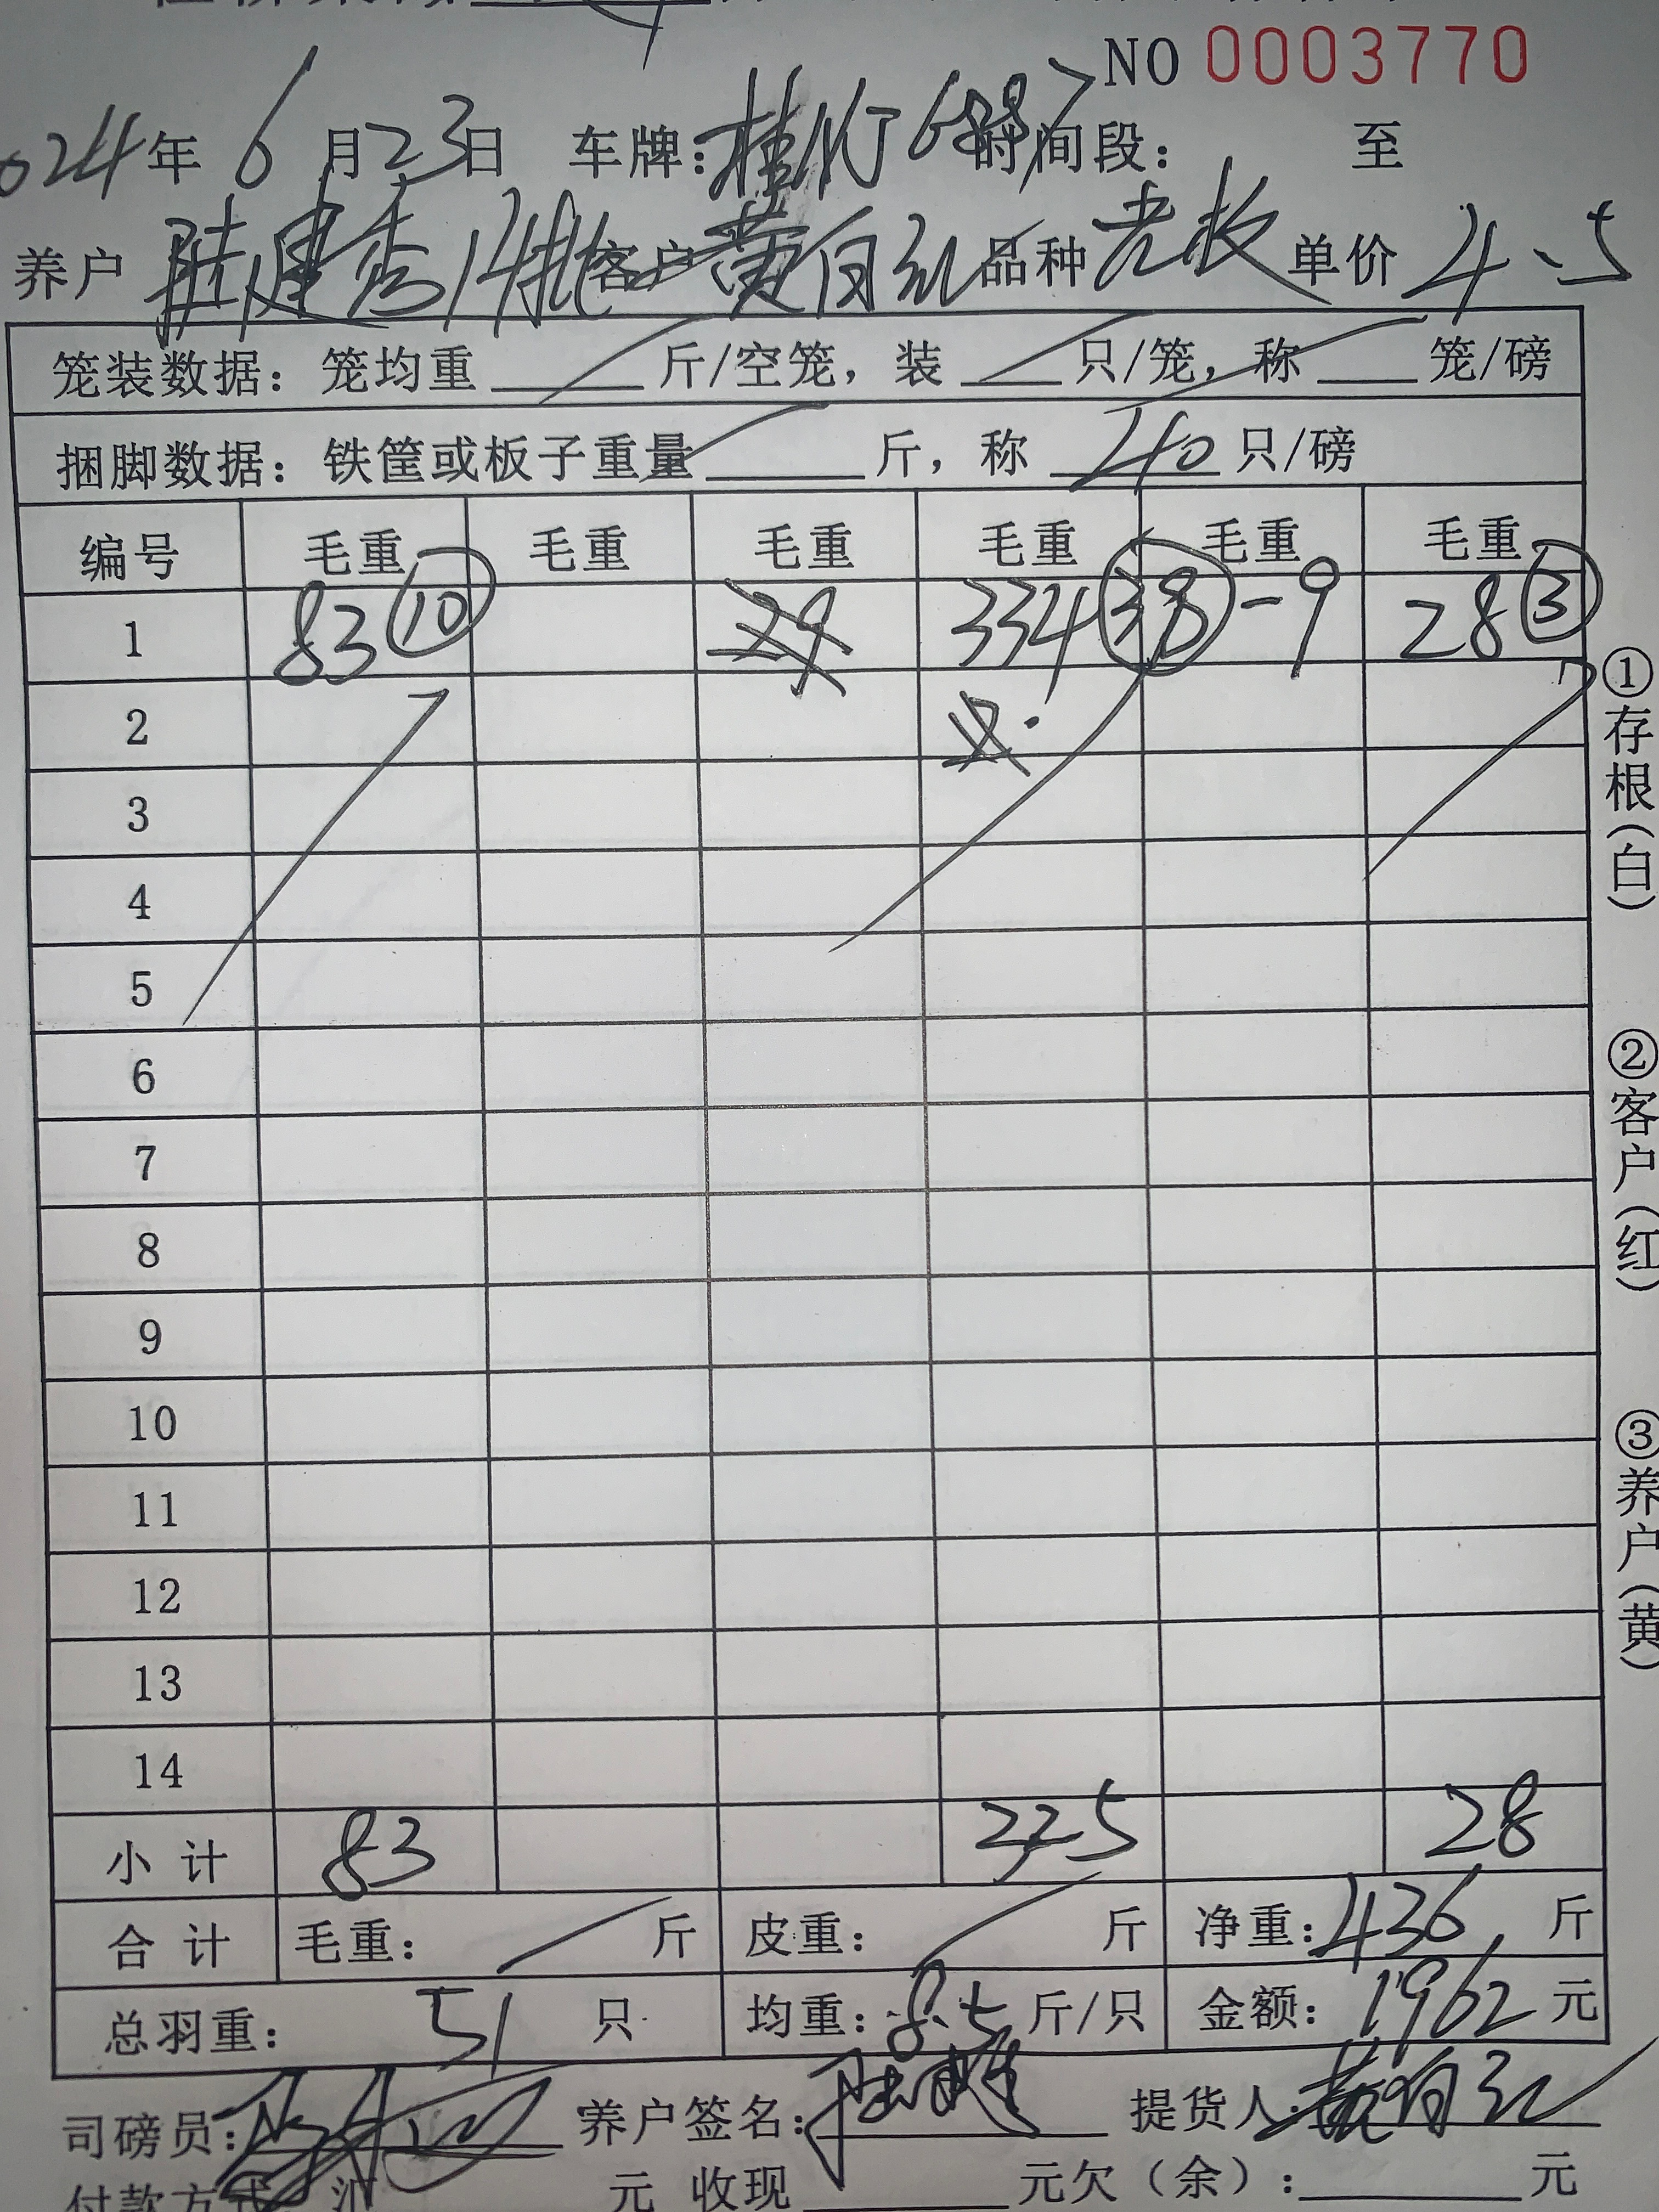 NO 0003770
024年 6月23日 车牌: 时间段: 至
养户 陆建秀14批 客户 黄向红 品种 老板 单价 4.5
笼装数据: 笼均重 斤/空笼, 装 只/笼, 称 笼/磅
捆脚数据: 铁筐或板子重量 斤, 称 40 只/磅
编号 毛重 毛重 毛重 毛重 毛重 毛重
1 83 ⑩ 29 334 38 -9 28 ③
2
3
4
5
6
7
8
9
10
11
12
13
14
小计 83 325 28
合计 毛重: 斤 皮重: 斤 净重: 436 斤
总羽重: 51 只 均重: 8.5 斤/只 金额: 1962 元
司磅员: 养户签名: 提货人: 黄向红
付款方式 汇 元 收现 元欠(余): 元
①存根(白)
②客户(红)
③养户(黄)